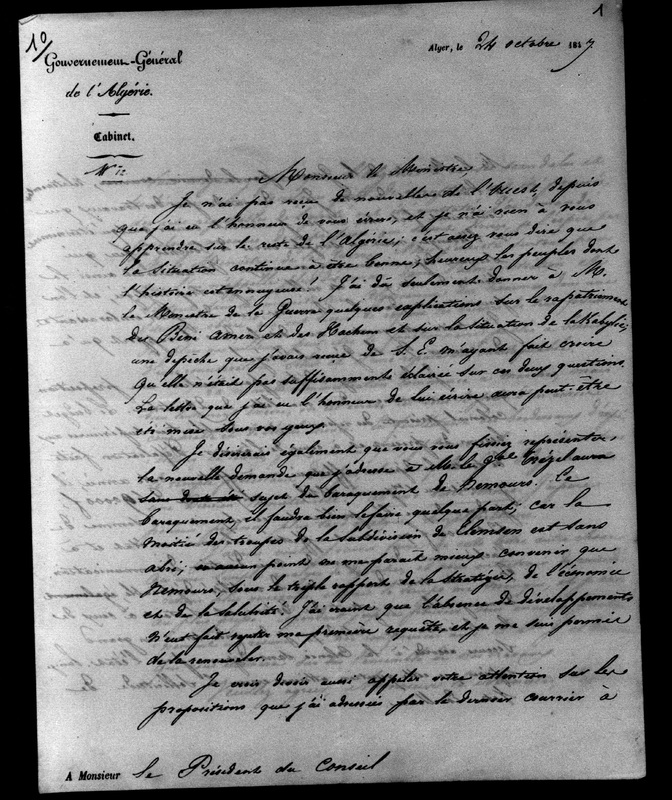 1º/
1
Gouvernement-Général
de l'Algérie.
Cabinet.
Nº 12
Alger, le 24 octobre 1847
Monsieur le Ministre,
Je n'ai pas reçu de nouvelles de l'Ouest, depuis
que j'ai eu l'honneur de vous écrire, et je n'ai rien à vous
apprendre sur le reste de l'Algérie; c'est assez vous dire que
la situation continue à être bonne; heureux les peuples dont
l'histoire est ennuyeuse! J'ai dû seulement donner à M.
le Ministre de la Guerre quelques explications sur le rapatriement
des Beni Amer et des Hachem et sur la situation de la Kabylie;
une dépêche que j'avais reçue de S. E. m'ayant fait croire
qu'elle n'était pas suffisamment éclairée sur ces deux questions.
La lettre que j'ai eu l'honneur de lui écrire aura peut-être
été mise sous vos yeux.
Je désirerais également que vous vous fissiez représenter
la nouvelle demande que j'adresse à M. le Gal Trézel au
sans doute été sujet du baraquement de Nemours. Ce
baraquement, il faudra bien le faire quelque part, car la
moitié des troupes de la subdivision de Tlemsen est sans
abri; et aucun point ne me parait mieux convenir que
Nemours, sous le triple rapport de la stratégie, de l'économie
et de la salubrité. J'ai craint que l'absence de développements
n'eut fait rejeter ma première requête, et je me suis permis
de la renouveler.
Je crois devoir aussi appeler votre attention sur les
propositions que j'ai adressées par le dernier courrier à
A Monsieur le Président du Conseil